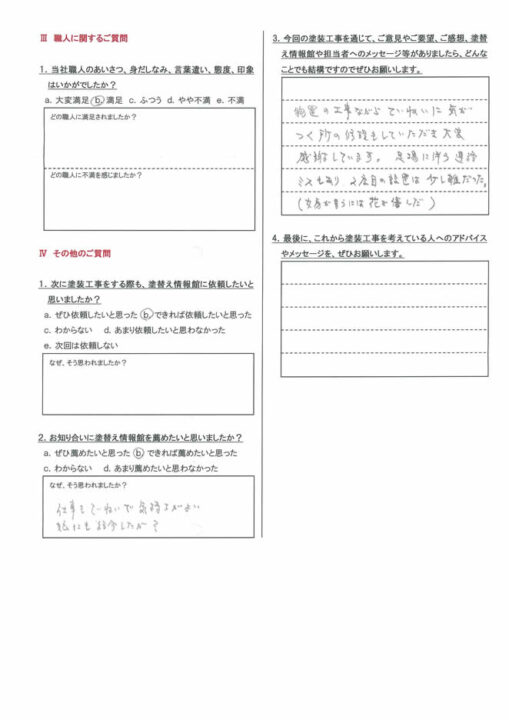 Ⅲ 職人に関するご質問
1. 当社職人のあいさつ、身だしなみ、言葉遣い、態度、印象
はいかがでしたか？
a. 大変満足 b. 満足 c. ふつう d. やや不満 e. 不満
どの職人に満足されましたか？
どの職人に不満を感じましたか？
Ⅳ その他のご質問
1. 次に塗装工事をする際も、塗替え情報館に依頼したいと
思いましたか？
a. ぜひ依頼したいと思った b. できれば依頼したいと思った
c. わからない d. あまり依頼したいと思わなかった
e. 次回は依頼しない
なぜ、そう思われましたか？
2. お知り合いに塗替え情報館を薦めたいと思いましたか？
a. ぜひ薦めたいと思った b. できれば薦めたいと思った
c. わからない d. あまり薦めたいと思わなかった
なぜ、そう思われましたか？
仕事もていねいで気持ちがよい
3. 今回の塗装工事を通じて、ご意見やご要望、ご感想、塗替
え情報館や担当者へのメッセージ等がありましたら、どんな
ことでも結構ですのでぜひお願いします。
物置の工事ながら ていねいに 気が
つく所の修理もしていただき大変
感謝しています。 足場に伴う連絡
ミスもあり 2度目の設置は 少し雑だった。
(女房が言うには 花が傷んだ)
4. 最後に、これから塗装工事を考えている人へのアドバイス
やメッセージを、ぜひお願いします。